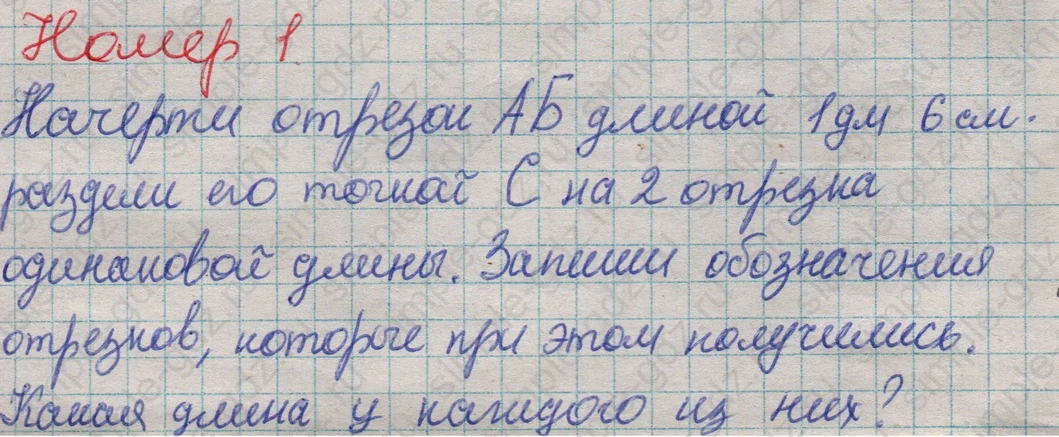 Номер 1
Начерти отрезок АБ длиной 1дм 6см.
раздели его точкой С на 2 отрезка
одинаковой длины. Запиши обозначения
отрезков, которые при этом получились.
Какая длина у каждого из них?